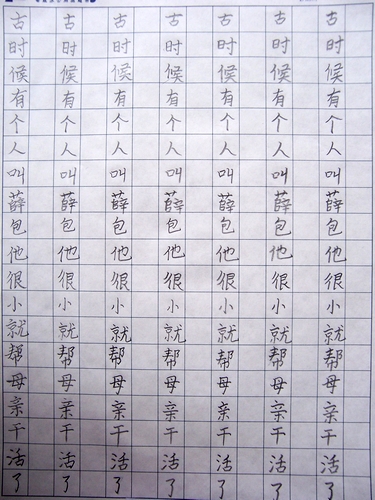 古 古 古 古 古 古 古
时 时 时 时 时 时 时
候 候 候 候 候 候 候
有 有 有 有 有 有 有
个 个 个 个 个 个 个
人 人 人 人 人 人 人
叫 叫 叫 叫 叫 叫 叫
薛 薛 薛 薛 薛 薛 薛
包 包 包 包 包 包 包
他 他 他 他 他 他 他
很 很 很 很 很 很 很
小 小 小 小 小 小 小
就 就 就 就 就 就 就
帮 帮 帮 帮 帮 帮 帮
母 母 母 母 母 母 母
亲 亲 亲 亲 亲 亲 亲
干 干 干 干 干 干 干
活 活 活 活 活 活 活
了 了 了 了 了 了 了